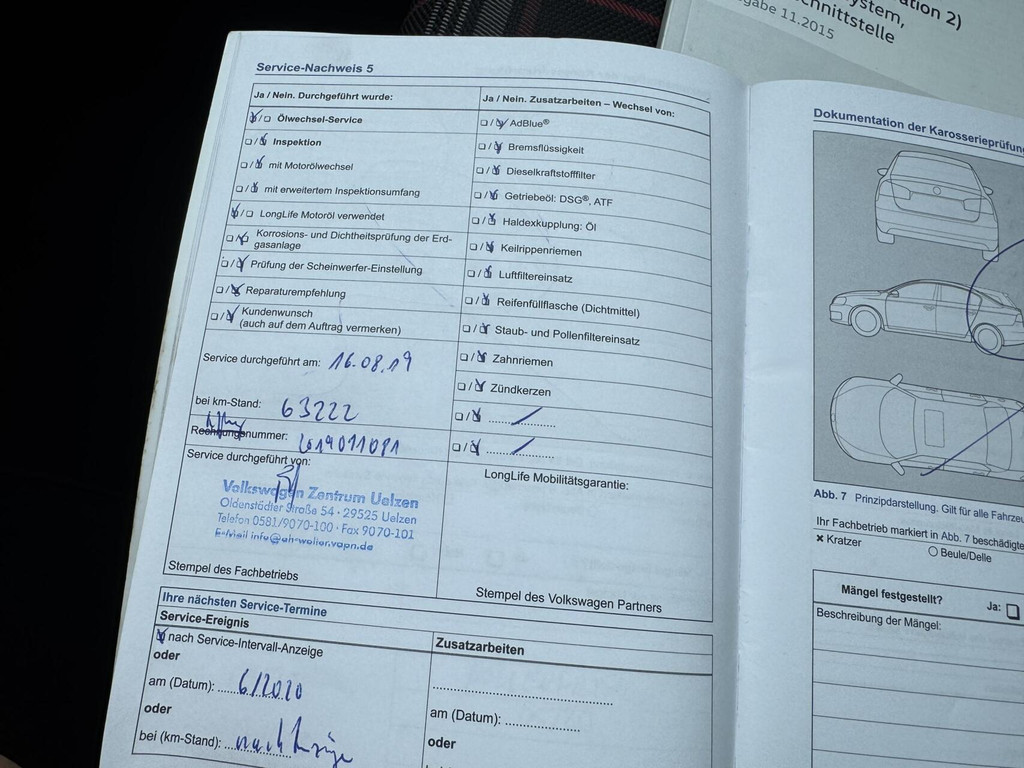 ation 2)
ystem,
chnittstelle
gabe 11.2015
Service-Nachweis 5
Ja / Nein. Durchgeführt wurde:
Ölwechsel-Service
Inspektion
mit Motorölwechsel
mit erweitertem Inspektionsumfang
LongLife Motoröl verwendet
Korrosions- und Dichtheitsprüfung der Erd-
gasanlage
Prüfung der Scheinwerfer-Einstellung
Reparaturempfehlung
Kundenwunsch
(auch auf dem Auftrag vermerken)
Service durchgeführt am: 16.08.19
bei km-Stand: 63222
Rechnungsnummer:
Service durchgeführt von:
Volkswagen Zentrum Uelzen
Oldenstädter Straße 54 · 29525 Uelzen
Telefon 0581/9070-100 · Fax 9070-101
E-Mail info@ah-wolter.vapn.de
Stempel des Fachbetriebs
Ja / Nein. Zusatzarbeiten – Wechsel von:
AdBlue®
Bremsflüssigkeit
Dieselkraftstofffilter
Getriebeöl: DSG®, ATF
Haldexkupplung: Öl
Keilrippenriemen
Luftfiltereinsatz
Reifenfüllflasche (Dichtmittel)
Staub- und Pollenfiltereinsatz
Zahnriemen
Zündkerzen
LongLife Mobilitätsgarantie:
Stempel des Volkswagen Partners
Ihre nächsten Service-Termine
Service-Ereignis
nach Service-Intervall-Anzeige
oder
am (Datum): 6/2020
oder
bei (km-Stand): nach Anzeige
Zusatzarbeiten
am (Datum):
oder
Dokumentation der Karosserieprüfung
Abb. 7 Prinzipdarstellung. Gilt für alle Fahrze
Ihr Fachbetrieb markiert in Abb. 7 beschädigte
Kratzer
Beule/Delle
Mängel festgestellt?
Ja:
Beschreibung der Mängel: